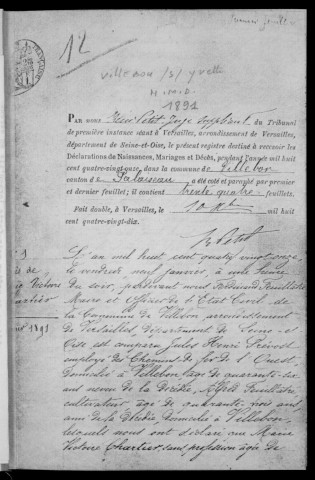 12
Villebon /s/ Yvette
N. M. D.
1891
PAR NOUS Petit, Juge suppléant du Tribunal
de première instance séant à Versailles, arrondissement de Versailles,
département de Seine-et-Oise, le présent registre destiné à recevoir les
Déclarations de Naissances, Mariages et Décès, pendant l'année mil huit
cent quatre-vingt-onze, dans la commune de Villebon
canton de Palaiseau a été coté et paraphé par premier
et dernier feuillet; il contient trente quatre feuillets.
Fait double, à Versailles, le 10 mil huit
cent quatre-vingt-dix.
Petit
L'an mil huit cent quatre vingt onze,
le vendredi neuf janvier, à
du soir, pardevant nous Ferdinand
Maire et Officier de l'Etat Civil de
la Commune de Villebon arrondissement
de Versailles, Département de Seine et
Oise est comparu Jules Henri Prévost
employé des Chemins de fer de l'Ouest
domicilié à Villebon âgé de quarante-six
ans
cultivateur âgé de quarante trois ans,
domiciliés à Villebon,
lesquels nous ont déclaré que Marie
Victoire Chartier, sans profession âgée de